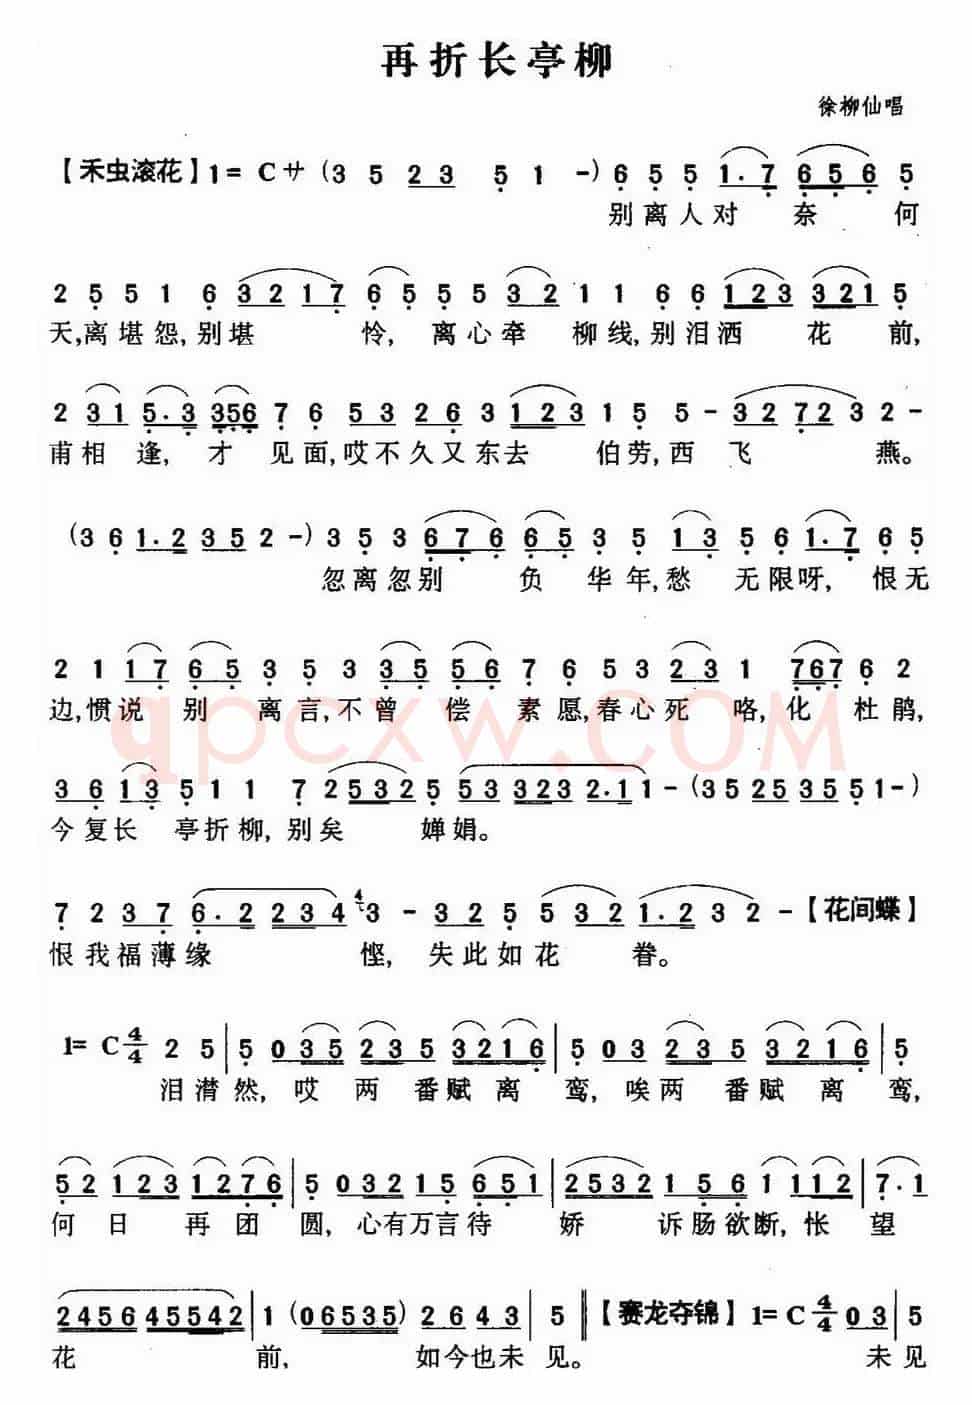 再折长亭柳
徐柳仙唱
【禾虫滚花】1= C サ (3 5 23 5 1 -) 6 5 5 1.7 656 5
别离人对 奈 何
2 5 5 1 6 3217 6 5 5 5 32 1 1 6 6 123 321 5
天,离堪怨,别堪 怜, 离心牵 柳线,别泪洒 花 前,
2 31 5.3 356 7 6 53 26 3 123 1 5 5 - 32723 2 -
甫相 逢, 才 见面,哎不久又东去 伯劳,西飞 燕。
(36 1.2 352 -) 3 5 3 676 65 3 5 13 5 6 1.7 6 5
忽离忽别 负 华年,愁 无限呀, 恨无
2 1 17 65 3 5 3 35 56 7 6 5 3 23 1 767 6 2
边,惯说 别 离言,不曾 偿 素愿,春心死 咯,化 杜鹃,
36 13 5 1 1 7 2532 5 53 323 2.1 1 - (35 25 35 51 -)
今复长 亭折柳, 别矣 婵娟。
7 2 37 6.2 234 4 3 - 3 2 5 532 1.2 32 - 【花间蝶】
恨我福薄缘 悭, 失此如花 眷。
1= C 4/4 2 5 | 5 035 235 3216 | 5 03 235 3216 | 5
泪潸然, 哎 两 番赋 离 鸾, 唉两 番赋 离 鸾,
52 123 1276 | 5 03215 651 | 2532 156 1 112 | 7.1
何 日 再 团 圆, 心有万言待 娇 诉肠欲断, 怅 望
2456 45542 | 1 (06535) 2643 | 5 ‖ 【赛龙夺锦】 1= C 4/4 03 | 5
花 前, 如今也未 见。 未 见
qpcxw.COM